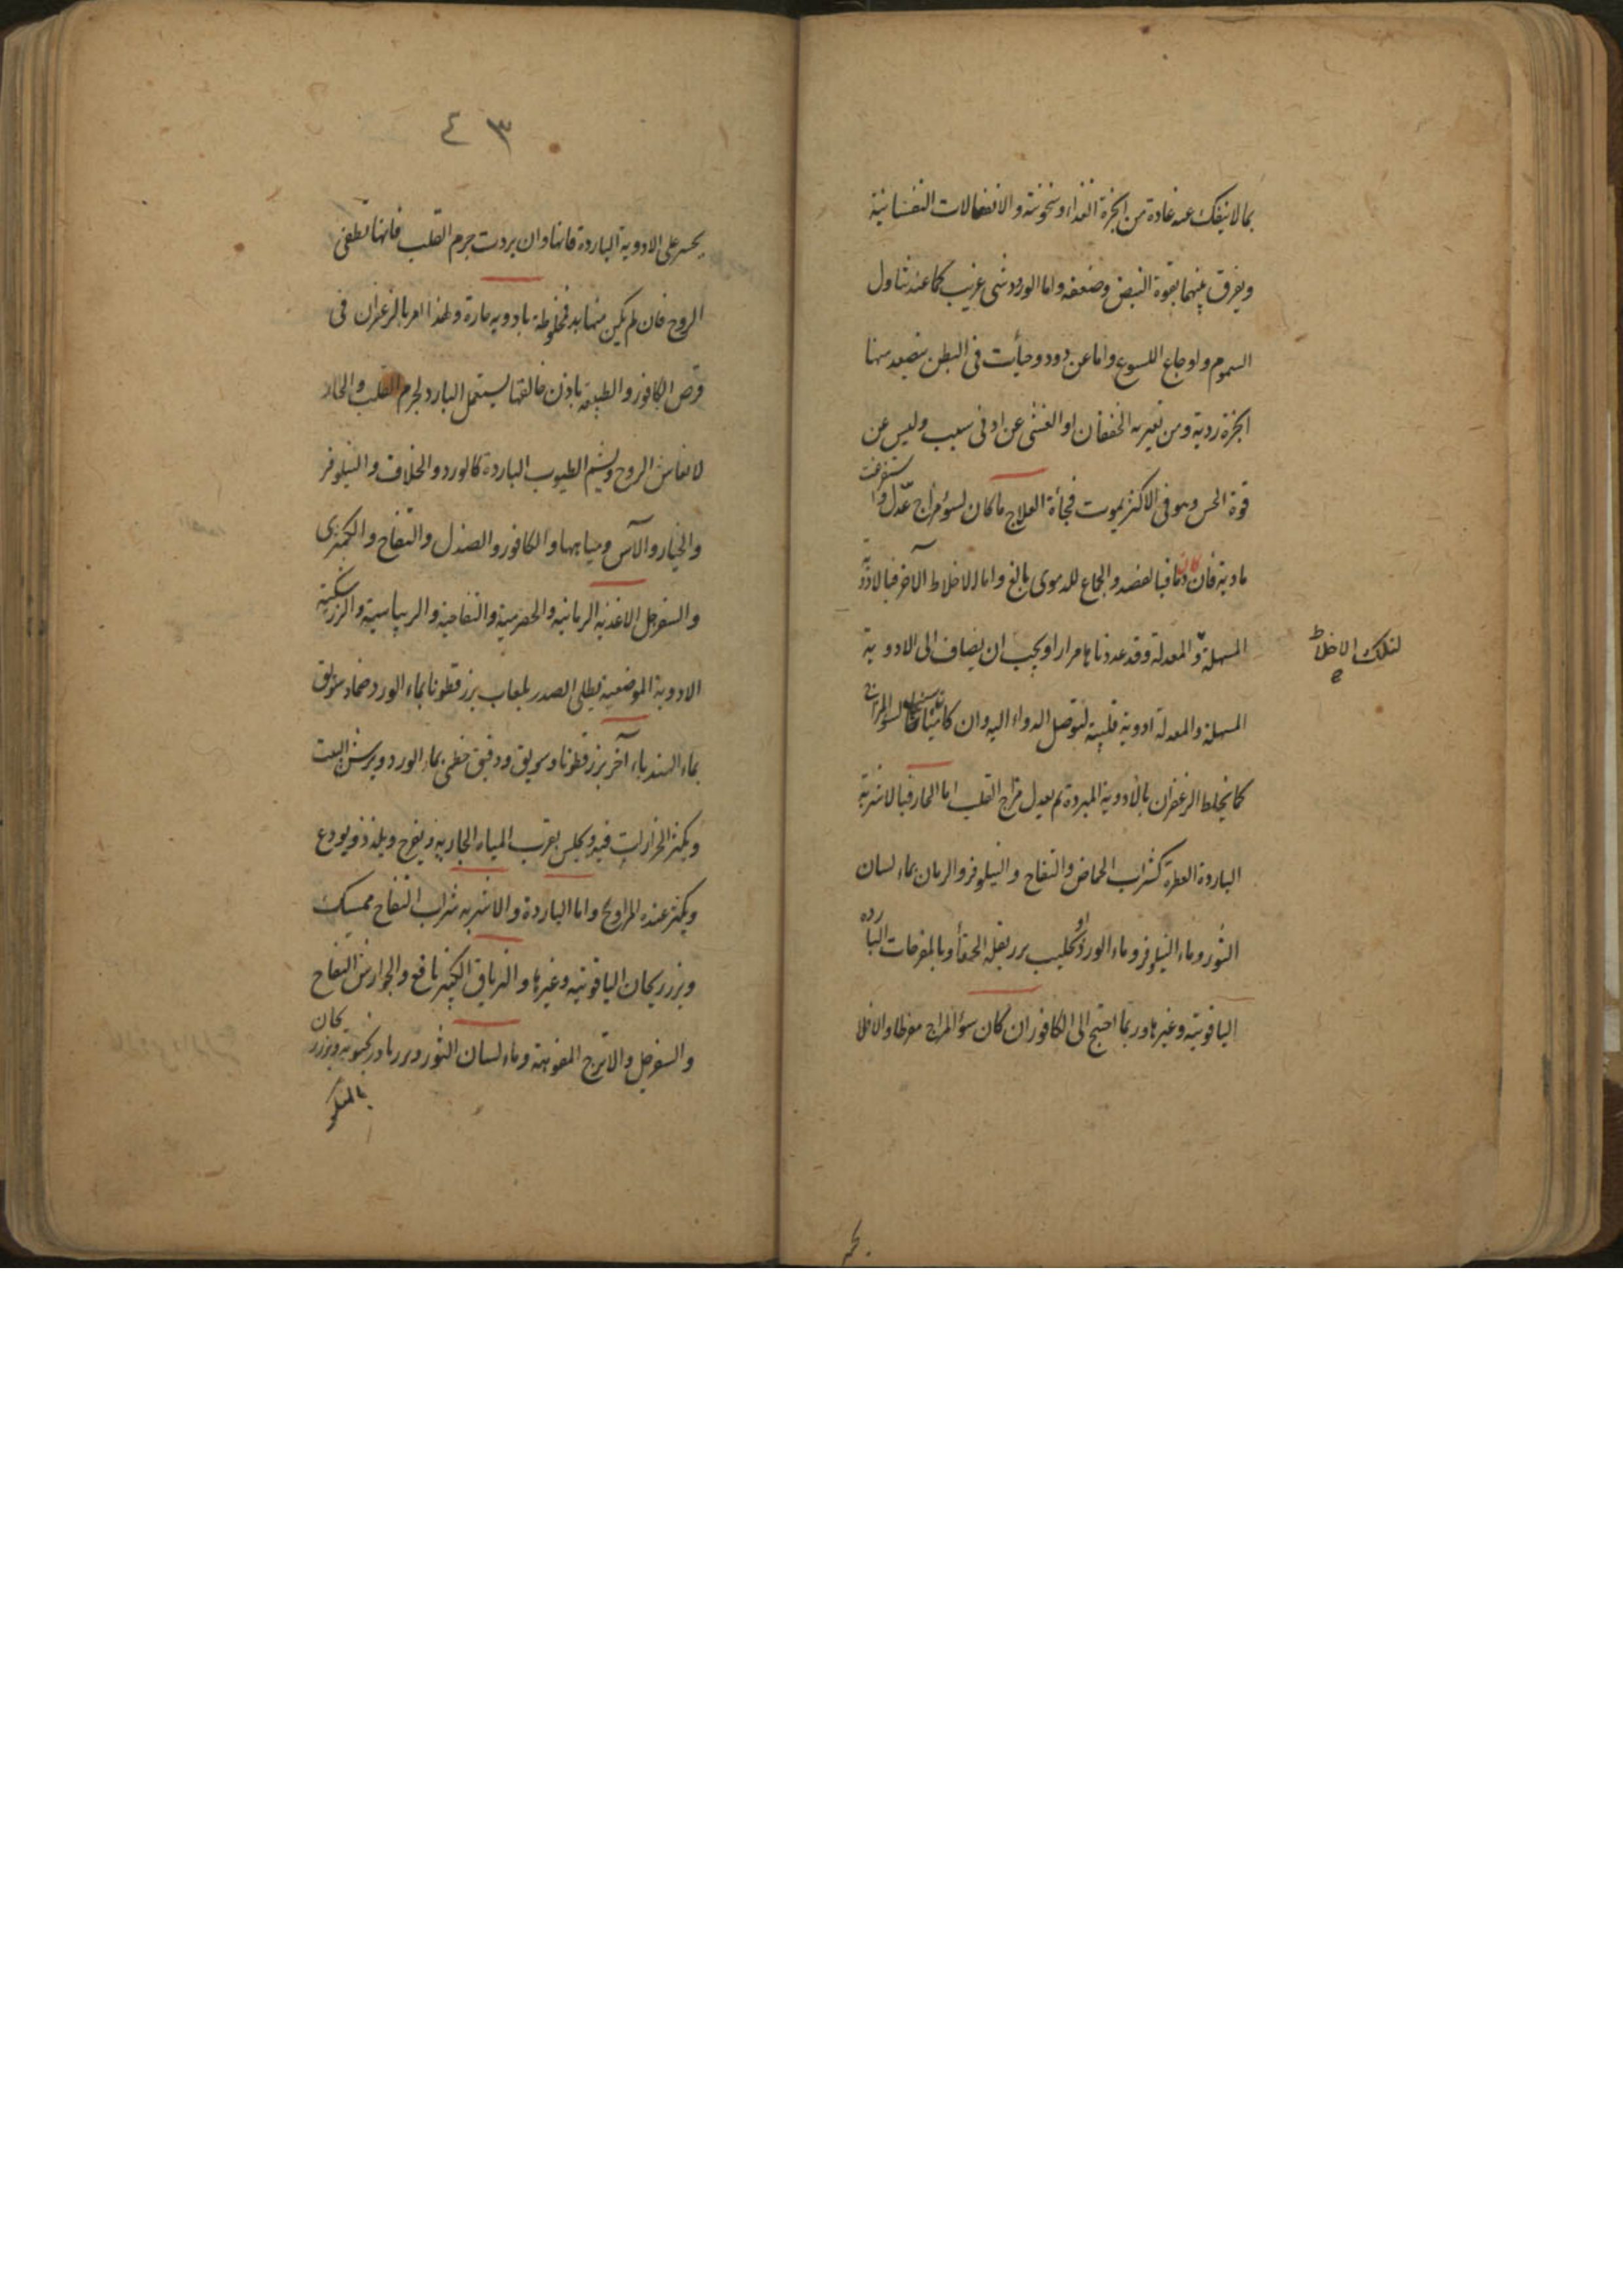 بما لا ينفك عنه عادة من ابخرة الغذاء وسخونته والانفعالات النفسانية
ويفرق بينهما بقوة النبض وضعفه واما لورود شى غريب كما عند تناول
السموم واوجاع اللسوع واما عن دود وحيات فى البطن يتصعد منها
ابخرة ردية ومن يعتريه الخفقان او الغشى عن ادنى سبب وليس عن
قوة الحس وهو فى الاكثر يموت فجأة العلاج ما كان لسؤ مزاج عدل واستفرغت
مادية فان كان دما فبالفصد والجماع للدموى بالغ واما الاخلاط الآخر فبالادوية
المسهلة والمعدلة وقد عددناها مرارا ويجب ان يضاف الى الادوية
لتلك الاخلاط
المسهلة والمعدلة ادوية قلبية لتوصل الدواء اليه وان كانت لسؤ المزاج
كما يخلط الزعفران بالادوية المبردة ثم يعدل مزاج القلب اما الحار فبالاشربة
الباردة العطرة كشراب الحماض والتفاح والنيلوفر والرمان بماء لسان
الثور وماء النيلوفر وماء الورد او بحليب بزر بقلة الحمقا وبالمفرحات الباردة
الياقوتية وغيرها وربما احتيج الى الكافور ان كان سؤ المزاج مفرطا والا فلا
يجسر
٤٣
يجسر على الادوية الباردة فانها وان بردت جرم القلب فانها تطفى
الروح فان لم يكن منها بد فمخلوطة بادويه حارة ولهذا امر بالزعفران فى
قرص الكافور والطبيعة باذن خالقها يستعمل البارد لجرم القلب والحار
لانعاش الروح ويشم الطيوب الباردة كالورد والخلاف والنيلوفر
والخيار والآس ومياهها والكافور والصندل والتفاح والكمثرى
والسفرجل الاغذية الرمانية والحصرمية والتفاحية والريباسية والزرشكية
الادوية الموضعية يطلى الصدر بلعاب بزرقطونا بماء الورد ضماد سويق
بماء الهندباء آخر بزرقطونا وسويق ودقيق خطمى بماء الورد ويرش البيت
ويكثر الخرارات فيه ويجلس بقرب المياه الجارية ويفرح ويلذذ ويودع
ويكثر عنده المراويح واما الباردة والاشربه شراب التفاح ممسك
وبزر ريحان الياقوتية وغيرها والترياق الكبير نافع والجوارش التفاح
والسفرجل والاترج المفوهة وماء لسان الثور وبزر بادرنجبويه وبزر ريحان